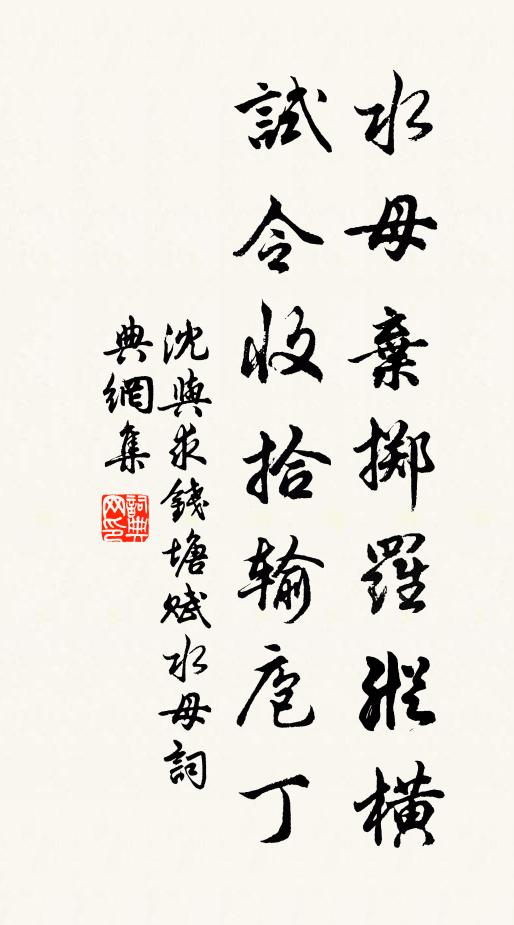 水母棄擲羅縱橫
試令收拾輸庖丁
沈與求錢塘賦水母詞
典網集
詞典網印